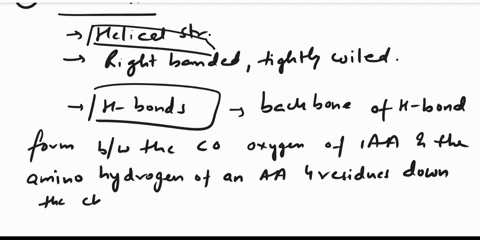 → Helical str.
→ Right handed, tightly coiled.
→ H-bonds → backbone of H-bond
form b/w the CO oxygen of 1AA & the
amino hydrogen of an AA 4 residues down
the ch